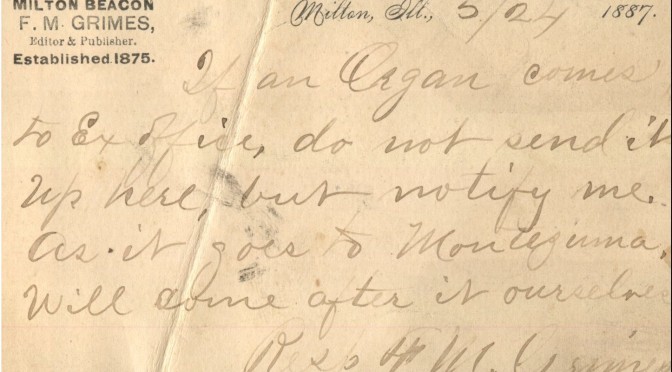 MILTON BEACON
F. M. GRIMES,
Editor & Publisher.
Established 1875.
Milton, Ill., 5/24 1887.
If an Organ comes
to Ex office, do not send it
up here, but notify me.
As it goes to Montezuma.
Will come after it ourselves
Resp F M. Grimes